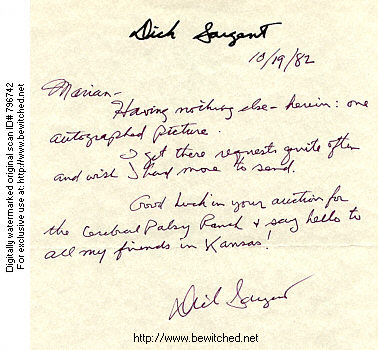 Dick Sargent
10/19/82
Marian-
Having nothing else - herein: one
autographed picture.
I get these requests quite often
and wish I had more to send.
Good luck in your auction for
the Cerebral Palsy Ranch & say hello to
all my friends in Kansas!
Dick Sargent
http://www.bewitched.net
Digitally watermarked original scan ID# 796742
For exclusive use at: http://www.bewitched.net